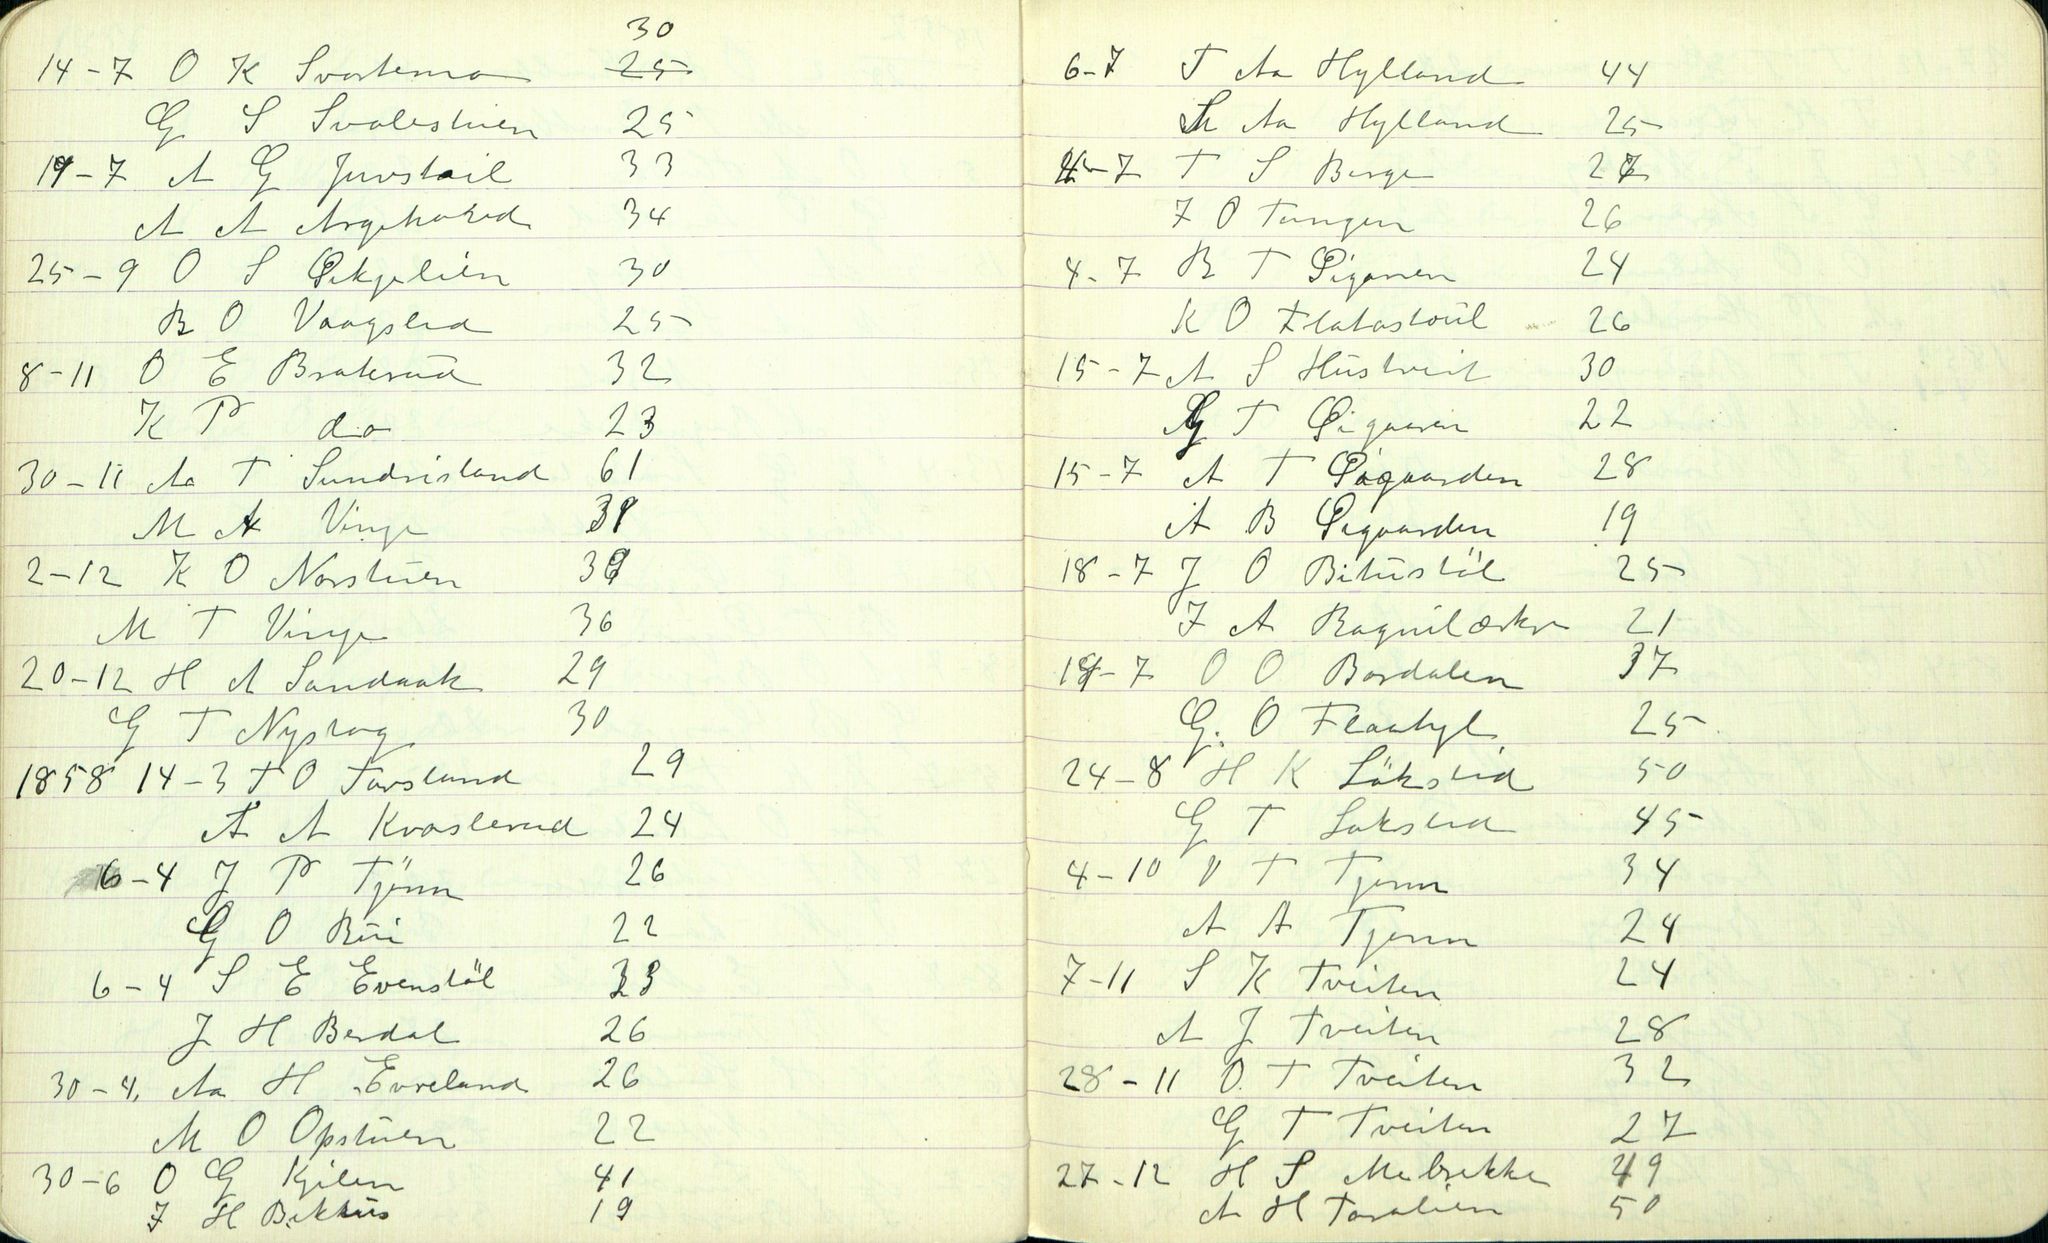 30
14-7 O K Svartemo 25
G S Svalestuen 25
19-7 A G Juvstøil 33
A A Argehovd 34
25-9 O S Øikjelien 30
B O Vaagslid 25
8-11 O E Brakerud 32
K P do 23
30-11 Aa T Sundrisland 61
M A Vinje
2-12 K O Norstuen 39
M T Vinje 36
20-12 H A Sandaak 29
G T Nyrog 30
1858 14-3 T O Torsland 29
A A Kvaslerud 24
6-4 J P Tjønn 26
G O Bui 22
6-4 S E Evenstøl 23
J H Berdal 26
30-4 Aa H Evreland 26
M O Opstuen 22
30-6 O G Kjilen 41
J H Bekhus 19
6-7 T Aa Hylland 44
M Aa Hylland 25
T S Berge 27
J O Tangen 26
4-7 B T Øigaren 24
K O Flatastøul 26
15-7 A S Hustveit 30
G T Øigaaren 22
15-7 A T Øigaarden 28
A B Øigaarden 19
18-7 J O Bitustøl 25
J A Ragnilærkre 21
19-7 O O Bordalen 37
G. O Flaatyl 25
24-8 H K Løkslid 50
G T Lokslid 45
4-10 O T Tjønn 34
A A Tjønn 24
7-11 S K Tveiten 24
A J Tveiten 28
28-11 O. T Tveiten 32
G T Tveiten 27
27-12 H S Mebrekke 49
A H Toralien 50